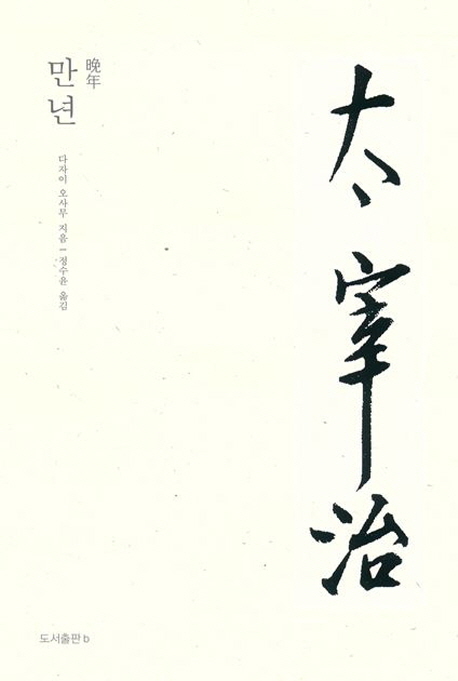 太宰治
晩年
만년
다자이 오사무 지음 | 정수윤 옮김
도서출판 b